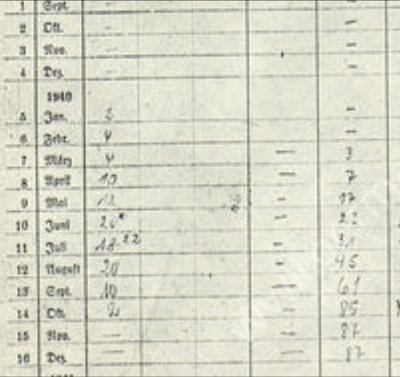 1 Sept. — —
2 Okt. — —
3 Nov. — —
4 Dez. — —
1940
5 Jan. 3 —
6 Febr. 4 —
7 März 4 — 3
8 April 10 — 7
9 Mai 12 17
10 Juni — 22
11 Juli 18 — 31
12 August 20 — 45
13 Sept. 10 — 61
14 Okt. 2 — 85
15 Nov. — — 87
16 Dez. — — 87